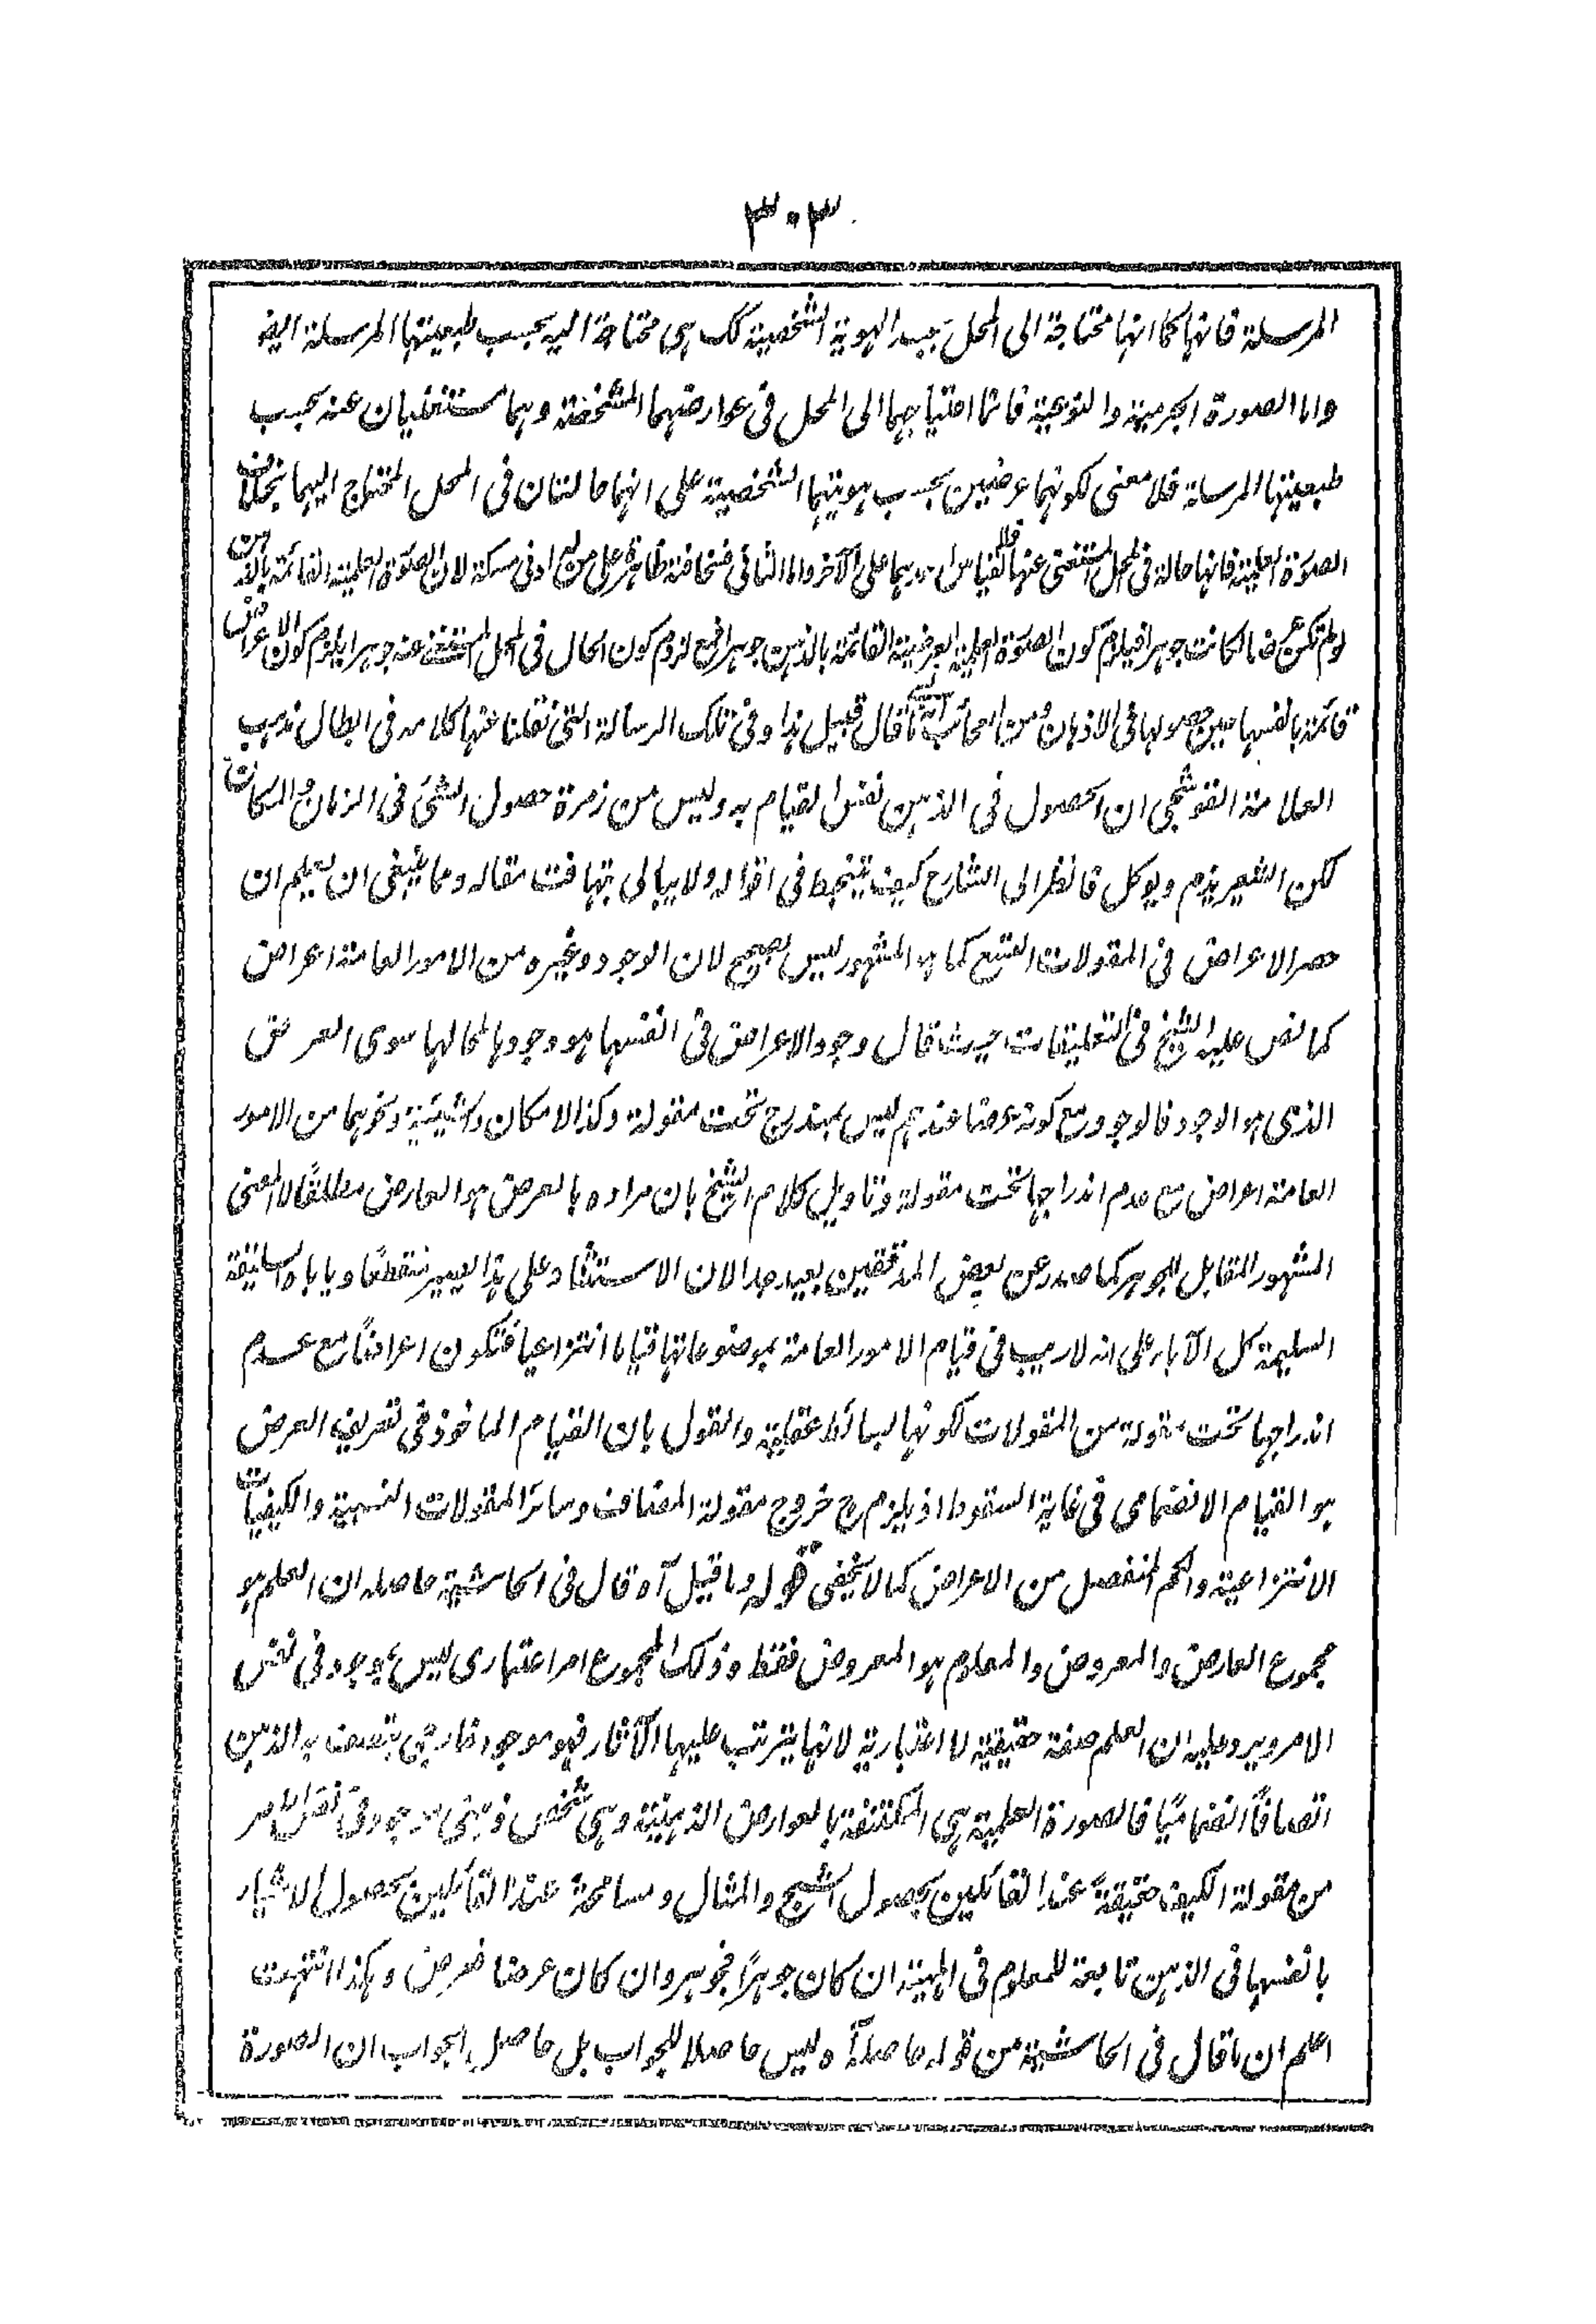 ٣٠٣
المرسلة فانها كما انها محتاجة الى المحل بحسب الهوية الشخصية كك هى محتاجة اليه بحسب طبيعتها المرسلة ايضا
واما الصورة الجرمية والنوعية فانما احتياجهما الى المحل فى عوارضهما المشخصة وهما مستغنيان عنه بحسب
طبيعتها المرسلة فلا معنى لكونهما عرضين بحسب هويتهما الشخصية على انهما حالتان فى المحل المحتاج اليهما بخلاف
الصورة العلمية فانها حالة فى المحل المستغنى عنها فلا يقاس احدهما على الآخر واما الثانى فسخافته ظاهرة على من له ادنى مسكة لان الصورة العلمية القائمة بالذهن
لو لم تكن عرضا لكانت جوهرا فيلزم كون الصورة العلمية العرضية القائمة بالذهن جوهرا فمع لزوم كون الحال فى المحل المستغنى عنه جوهرا يلزم كون الاعراض
قائمة بانفسها حين حصولها فى الاذهان ومن العجائب انه قال قبيل هذا وفى تلك الرسالة التى نقلنا عنها كلامه فى ابطال مذهب
العلامة القوشجى ان الحصول فى الذهن نفس القيام به وليس من زمرة حصول الشئ فى الزمان والمكان
لكن الشعير يذم ويوكل فانظر الى الشارح كيف يتخبط فى اقواله ولا يبالى بتهافت مقاله ومما ينبغى ان يعلم ان
حصر الاعراض فى المقولات التسع كما هو المشهور ليس بصحيح لان الوجود وغيره من الامور العامة اعراض
كما نص عليه الشيخ فى التعليقات حيث قال وجود الاعراض فى انفسها هو وجودها لمحالها سوى العرض
الذى هو الوجود فالوجود مع كونه عرضا عندهم ليس بمندرج تحت مقولة وكذا الامكان والشيئية ونحوهما من الامور
العامة اعراض مع عدم اندراجها تحت مقولة وتاويل كلام الشيخ بان مراده بالعرض هو العارض مطلقًا لا المعنى
المشهور المقابل للجوهر كما صدر عن بعض المدققين بعيد جدا لان الاستثناء على هذا يصير منقطعًا ويا باه السليقة
السليمة كل الآباء على انه لا ريب فى قيام الامور العامة بموضوعاتها قياما انتزاعيا فتكون اعراضًا مع عدم
اندراجها تحت مقولة من المقولات لكونها بسائط عقلية والقول بان القيام الماخوذ فى تعريف العرض
هو القيام الانضمامى فى غاية السقوط اذ يلزم ح خروج مقولة المضاف وسائر المقولات النسبية والكيفيات
الانتزاعية والكم المنفصل من الاعراض كما لا يخفى قوله وما قيل آه قال فى الحاشية حاصله ان العلم هو
مجموع العارض والمعروض والمعلوم هو المعروض فقط وذلك المجموع امر اعتبارى ليس بموجود فى نفس
الامر ويرد عليه ان العلم صفة حقيقية لا اعتبارية لانها يترتب عليها الآثار فهو موجود خارجى يتصف به الذهن
اتصافًا انضماميًا فالصورة العلمية هى المكتنفة بالعوارض الذهنية وهى شخص ذهنى موجود فى نفس الامر
من مقولة الكيف حقيقةً عند القائلين بحصول الشبح والمثال ومسامحة عند القائلين بحصول الاشياء
بانفسها فى الذهن تابعة للمعلوم فى المهية ان كان جوهرًا فجوهر وان كان عرضا فعرض وهكذا انتهت
اعلم ان ما قال فى الحاشية من قوله حاصله آه وليس حاصلا للجواب بل حاصل الجواب ان الصورة